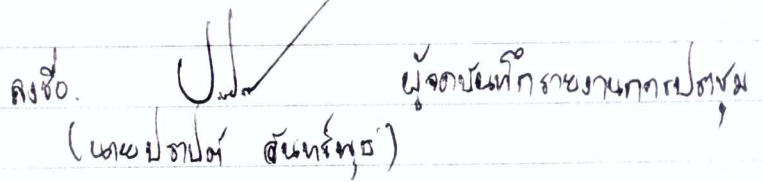 ลงชื่อ. ผู้จดบันทึกรายงานการประชุม
(นายปราปต์ จันทร์พุธ)